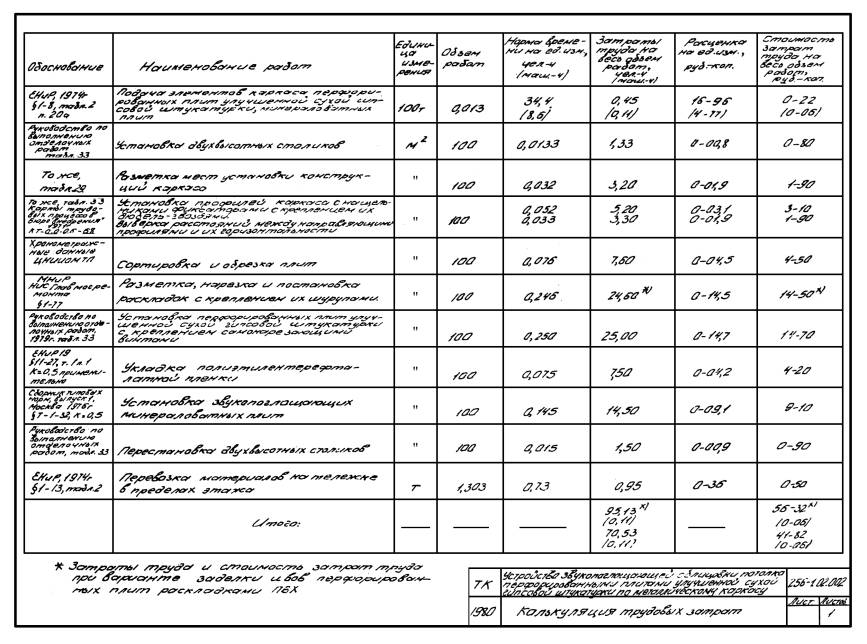 Обоснование
Наименование работ
Едини-
ца
изме-
рения
Объем
работ
Норма време-
ни на ед.изм.,
чел-ч
(маш-ч)
Затраты
труда на
весь объем
работ,
чел-ч
(маш-ч)
Расценка
на ед.изм.,
руб-коп.
Стоимость
затрат
труда на
весь объем
работ,
руб-коп.
ЕНиР, 1974г
§1-8, табл.2
п. 20а
Подача элементов каркаса, перфори-
рованных плит улучшенной сухой гип-
совой штукатурки, минераловатных
плит
100т
0,013
34,4
(8,6)
0,45
(0,11)
16-96
(4-77)
0-22
(0-06)
Руководство по
выполнению
отделочных
работ
табл. 33
Установка двухвысотных столиков
м²
100
0,0133
1,33
0-00,8
0-80
То же,
табл.29
Разметка мест установки конструк-
ций каркаса
"
100
0,032
3,20
0-01,9
1-90
То же, табл. 33
Карты трудо-
вых процессов
бюро внедрения
КТ-0.0-0К-68
Установка профилей каркаса с нащель-
никами фиксаторами с креплением их
дюбель-гвоздями.
Выверка расстояний между направляющими
профилями и их горизонтальности
"
100
0,052
0,033
5,20
3,30
0-03,1
0-01,9
3-10
1-90
Хронометраж-
ные данные
ЦНИИОМТП
Сортировка и обрезка плит
"
100
0,076
7,60
0-04,5
4-50
МНиР
НИС Главмосре-
монта
§1-77
Разметка, нарезка и постановка
раскладок с креплением их шурупами
"
100
0,246
24,60 *)
0-14,5
14-50 *)
Руководство по
выполнению отде-
лочных работ,
1979г. табл. 33
Установка перфорированных плит улуч-
шенной сухой гипсовой штукатурки
с креплением самонарезающими
винтами
"
100
0,250
25,00
0-14,7
14-70
ЕНиР 19
§11-27, т. 1 п. 1
К=0,5 примени-
тельно
Укладка полиэтилентерефта-
латной пленки
"
100
0,075
7,50
0-04,2
4-20
Сборник типовых
норм, выпуск 1,
Москва 1976г
§Т-1-32, К=0,5
Установка звукопоглощающих
минераловатных плит
"
100
0,145
14,50
0-09,1
9-10
Руководство по
выполнению
отделочных
работ, табл. 33
Перестановка двухвысотных столиков
"
100
0,015
1,50
0-00,9
0-90
ЕНиР, 1974г
§1-13, табл.2
Перевозка материалов на тележке
в пределах этажа
т
1,303
0,73
0,95
0-36
0-50
Итого:
95,13 *)
(0,11)
70,53
(0,11)
56-32 *)
(0-06)
41-82
(0-06)
* Затраты труда и стоимость затрат труда
при варианте заделки швов перфорирован-
ных плит раскладками ПВХ
ТК
Устройство звукопоглощающей облицовки потолка
перфорированными плитами улучшенной сухой
гипсовой штукатурки по металлическому каркасу
256-1.02.002
1980
Калькуляция трудовых затрат
Лист
Листов
1